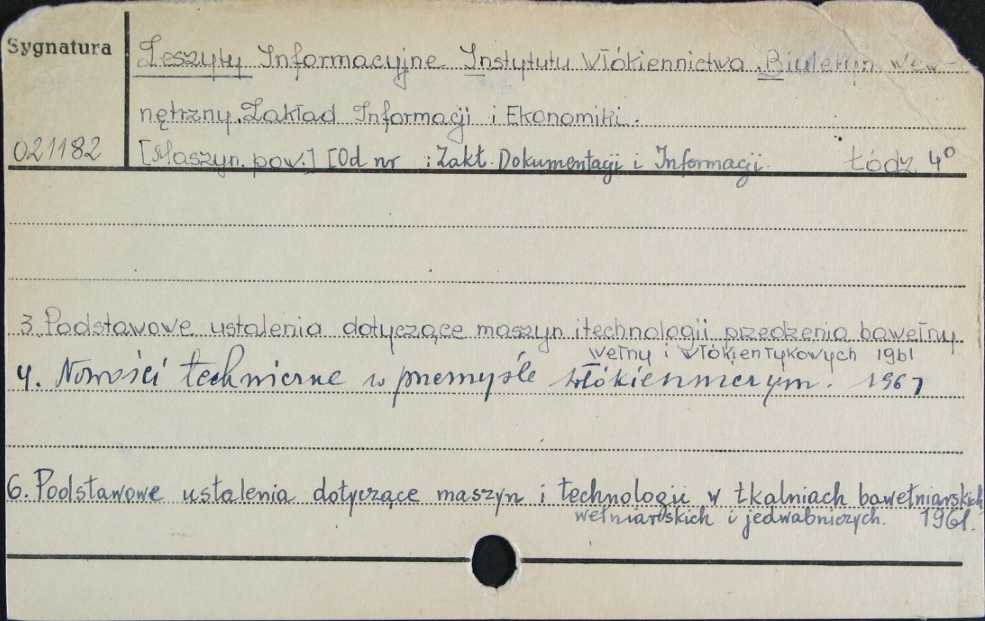 Sygnatura
Zeszyty Informacyjne Instytutu Włókiennictwa. Biuletyn wew-
nętrzny. Zakład Informacji i Ekonomiki.
021182
[Maszyn. pow.] [Od nr : Zakł. Dokumentacji i Informacji Łódź 4°
3. Podstawowe ustalenia dotyczące maszyn i technologii przędzenia bawełny
wełny i włókien łykowych 1961
4. Nowości techniczne w przemyśle włókienniczym. 1961
6. Podstawowe ustalenia dotyczące maszyn i technologii w tkalniach bawełniarskich
wełniarskich i jedwabniczych. 1961.